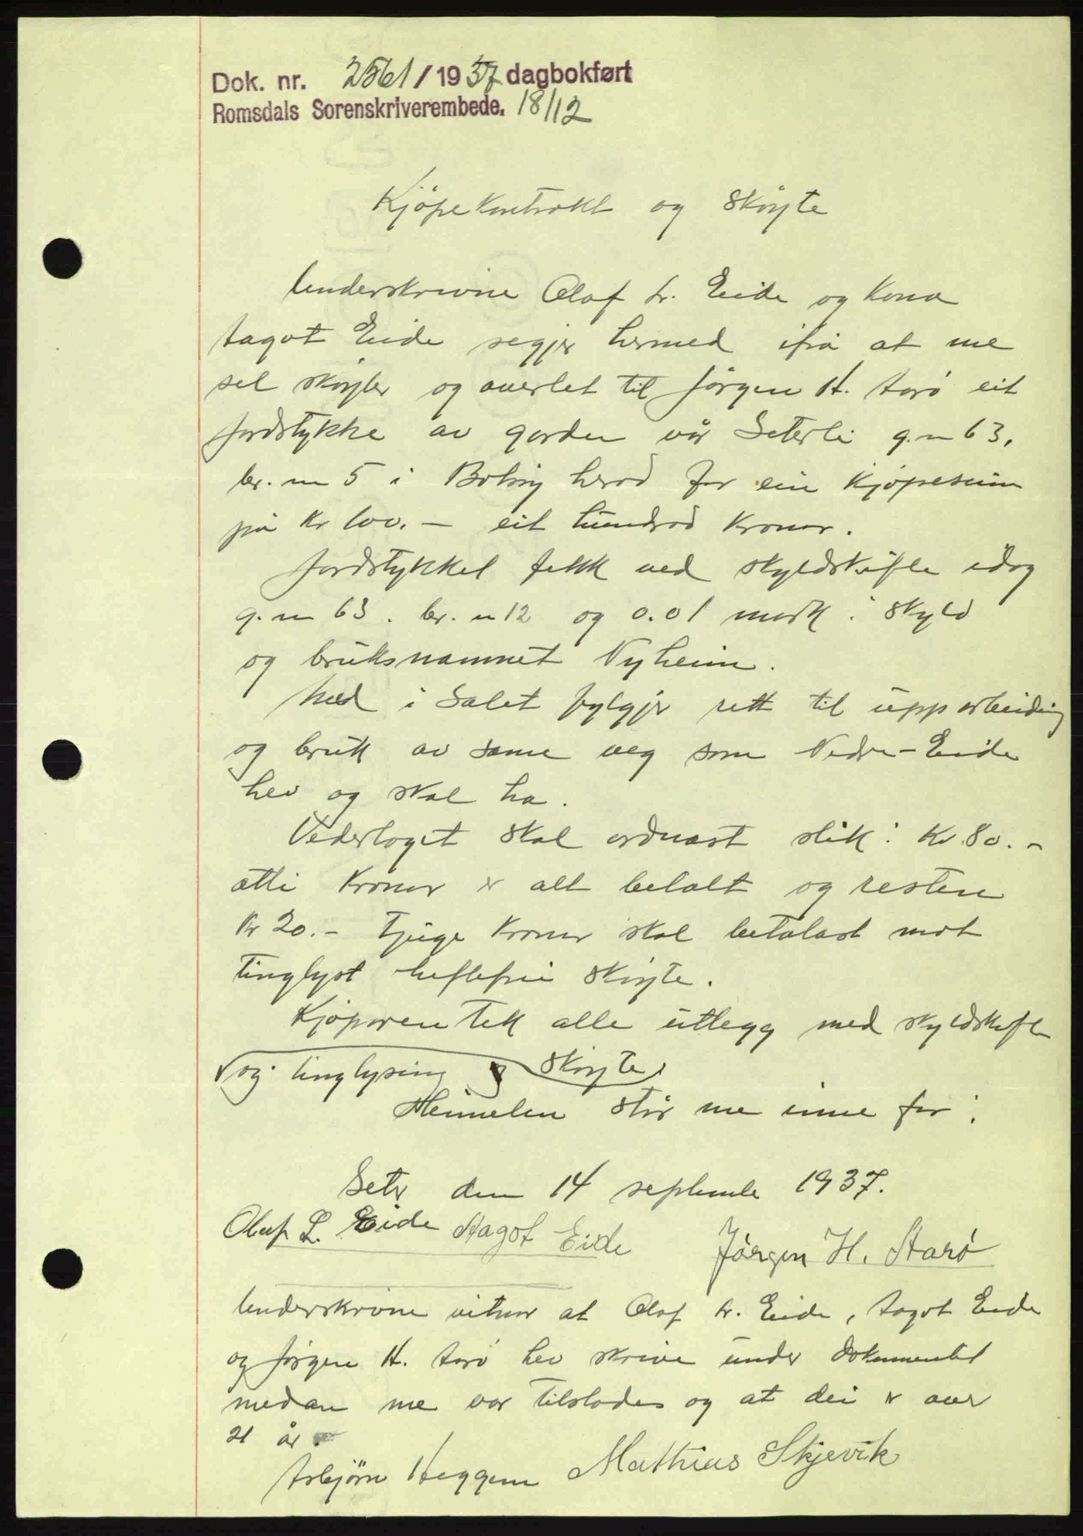 Dok. nr. 2561/1937 dagbokført
Romsdals Sorenskriverembede. 18/12
Kjøpekontrakt og skøyte
Underskrivne Olaf L. Eide og kona
Aagot Eide segjer hermed ifrå at me
sel skøyter og averlet til Jørgen H. Aarø eit
jordstykke av garden vår Seterli g.n 63,
br. n 5 i Bolsøy herad for ein kjøpesum
på kr 100.- eit hundrad kronor.
Jordstykket fekk ved skyldskifte idag
g.n 63. br. n 12 og 0.01 mark i skyld
og bruksnamnet Nyheim.
Med i salet fylgjer rett til upparbeiding
og bruk av same veg som Nedre-Eide
hev og skal ha.
Vederlaget skal ordnast slik: Kr 80.-
åtti kronor er alt betalt og resten
Kr 20.- tjuge kronor skal betalast mot
tinglyst heftefri skøyte.
Kjøparen tek alle utlegg med skyldskifte
og tinglysing skøyte.
Heimelen står me inne for.
den 14 september 1937.
Olaf L. Eide Aagot Eide Jørgen H. Aarø
Underskrivne vitnar at Olaf L. Eide, Aagot Eide
og Jørgen H. Aarø hev skrive under dokumentet
medan me var tilstades og at dei er over
21 år.
Asbjørn Heggem Mathias Skjevik